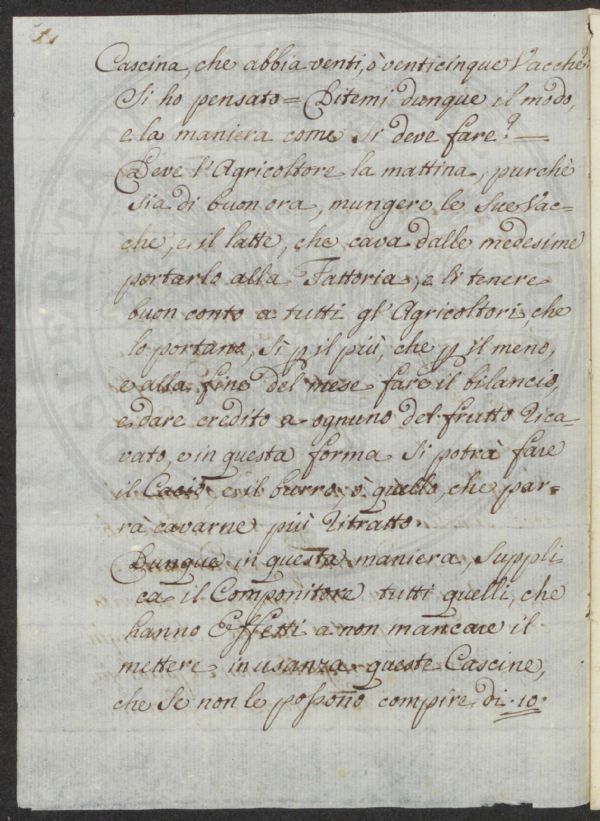 Cascina, che abbia venti, ò venticinque Vacche.
Si ho pensato = Ditemi dunque il modo,
e la maniera come si deve fare? —
Deve l'Agricoltore la mattina, purchè
sia di buon ora, mungere le sue Vac=
che, e il latte, che cava dalle medesime
portarlo alla Fattoria, e li tenere
buon conto a tutti gl'Agricoltori, che
lo portano, sì p il più, che p il meno,
e alla fine del mese fare il bilancio,
e dare credito a ognuno del frutto rica=
vato, e in questa forma si potrà fare
il Cacio e il burro, ò quello, che par=
rà cavarne più ritratto.
Dunque in questa maniera, suppli=
ca il Componitore tutti quelli, che
hanno Effetti a non mancare il
mettere in usanza queste Cascine,
che se non le possono compire di 10.